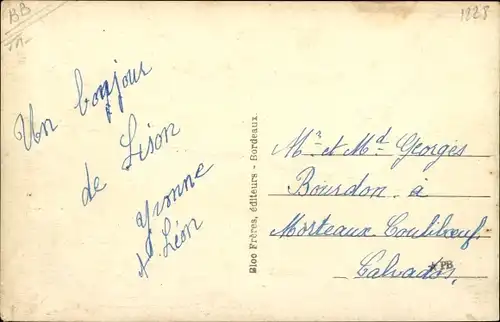 BB
1828
Un bonjour
de Lison
Yvonne
& Léon
Bloc Frères, éditeurs - Bordeaux
Mr et Md Georges
Bourdon à
Morteaux Coulibœuf
Calvados.
PB